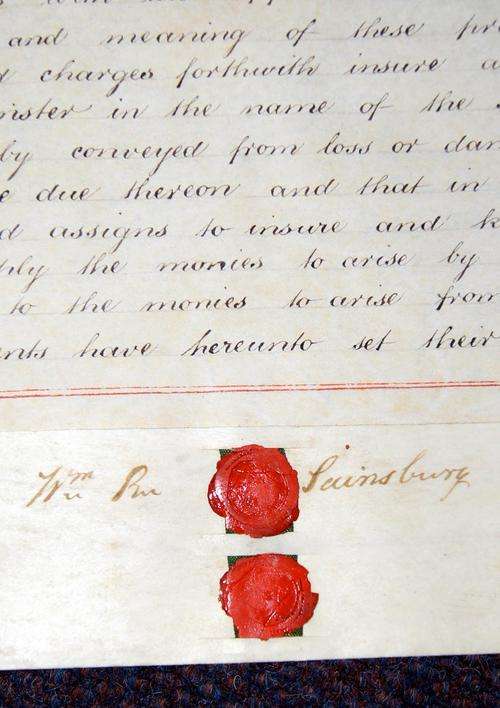 and meaning of these
charges forthwith insure
in the name of the
by conveyed from loss or
due thereon and that in
assigns to insure and
the monies to arise by
to the monies to arise from
have hereunto set their
Wm Sainsbury